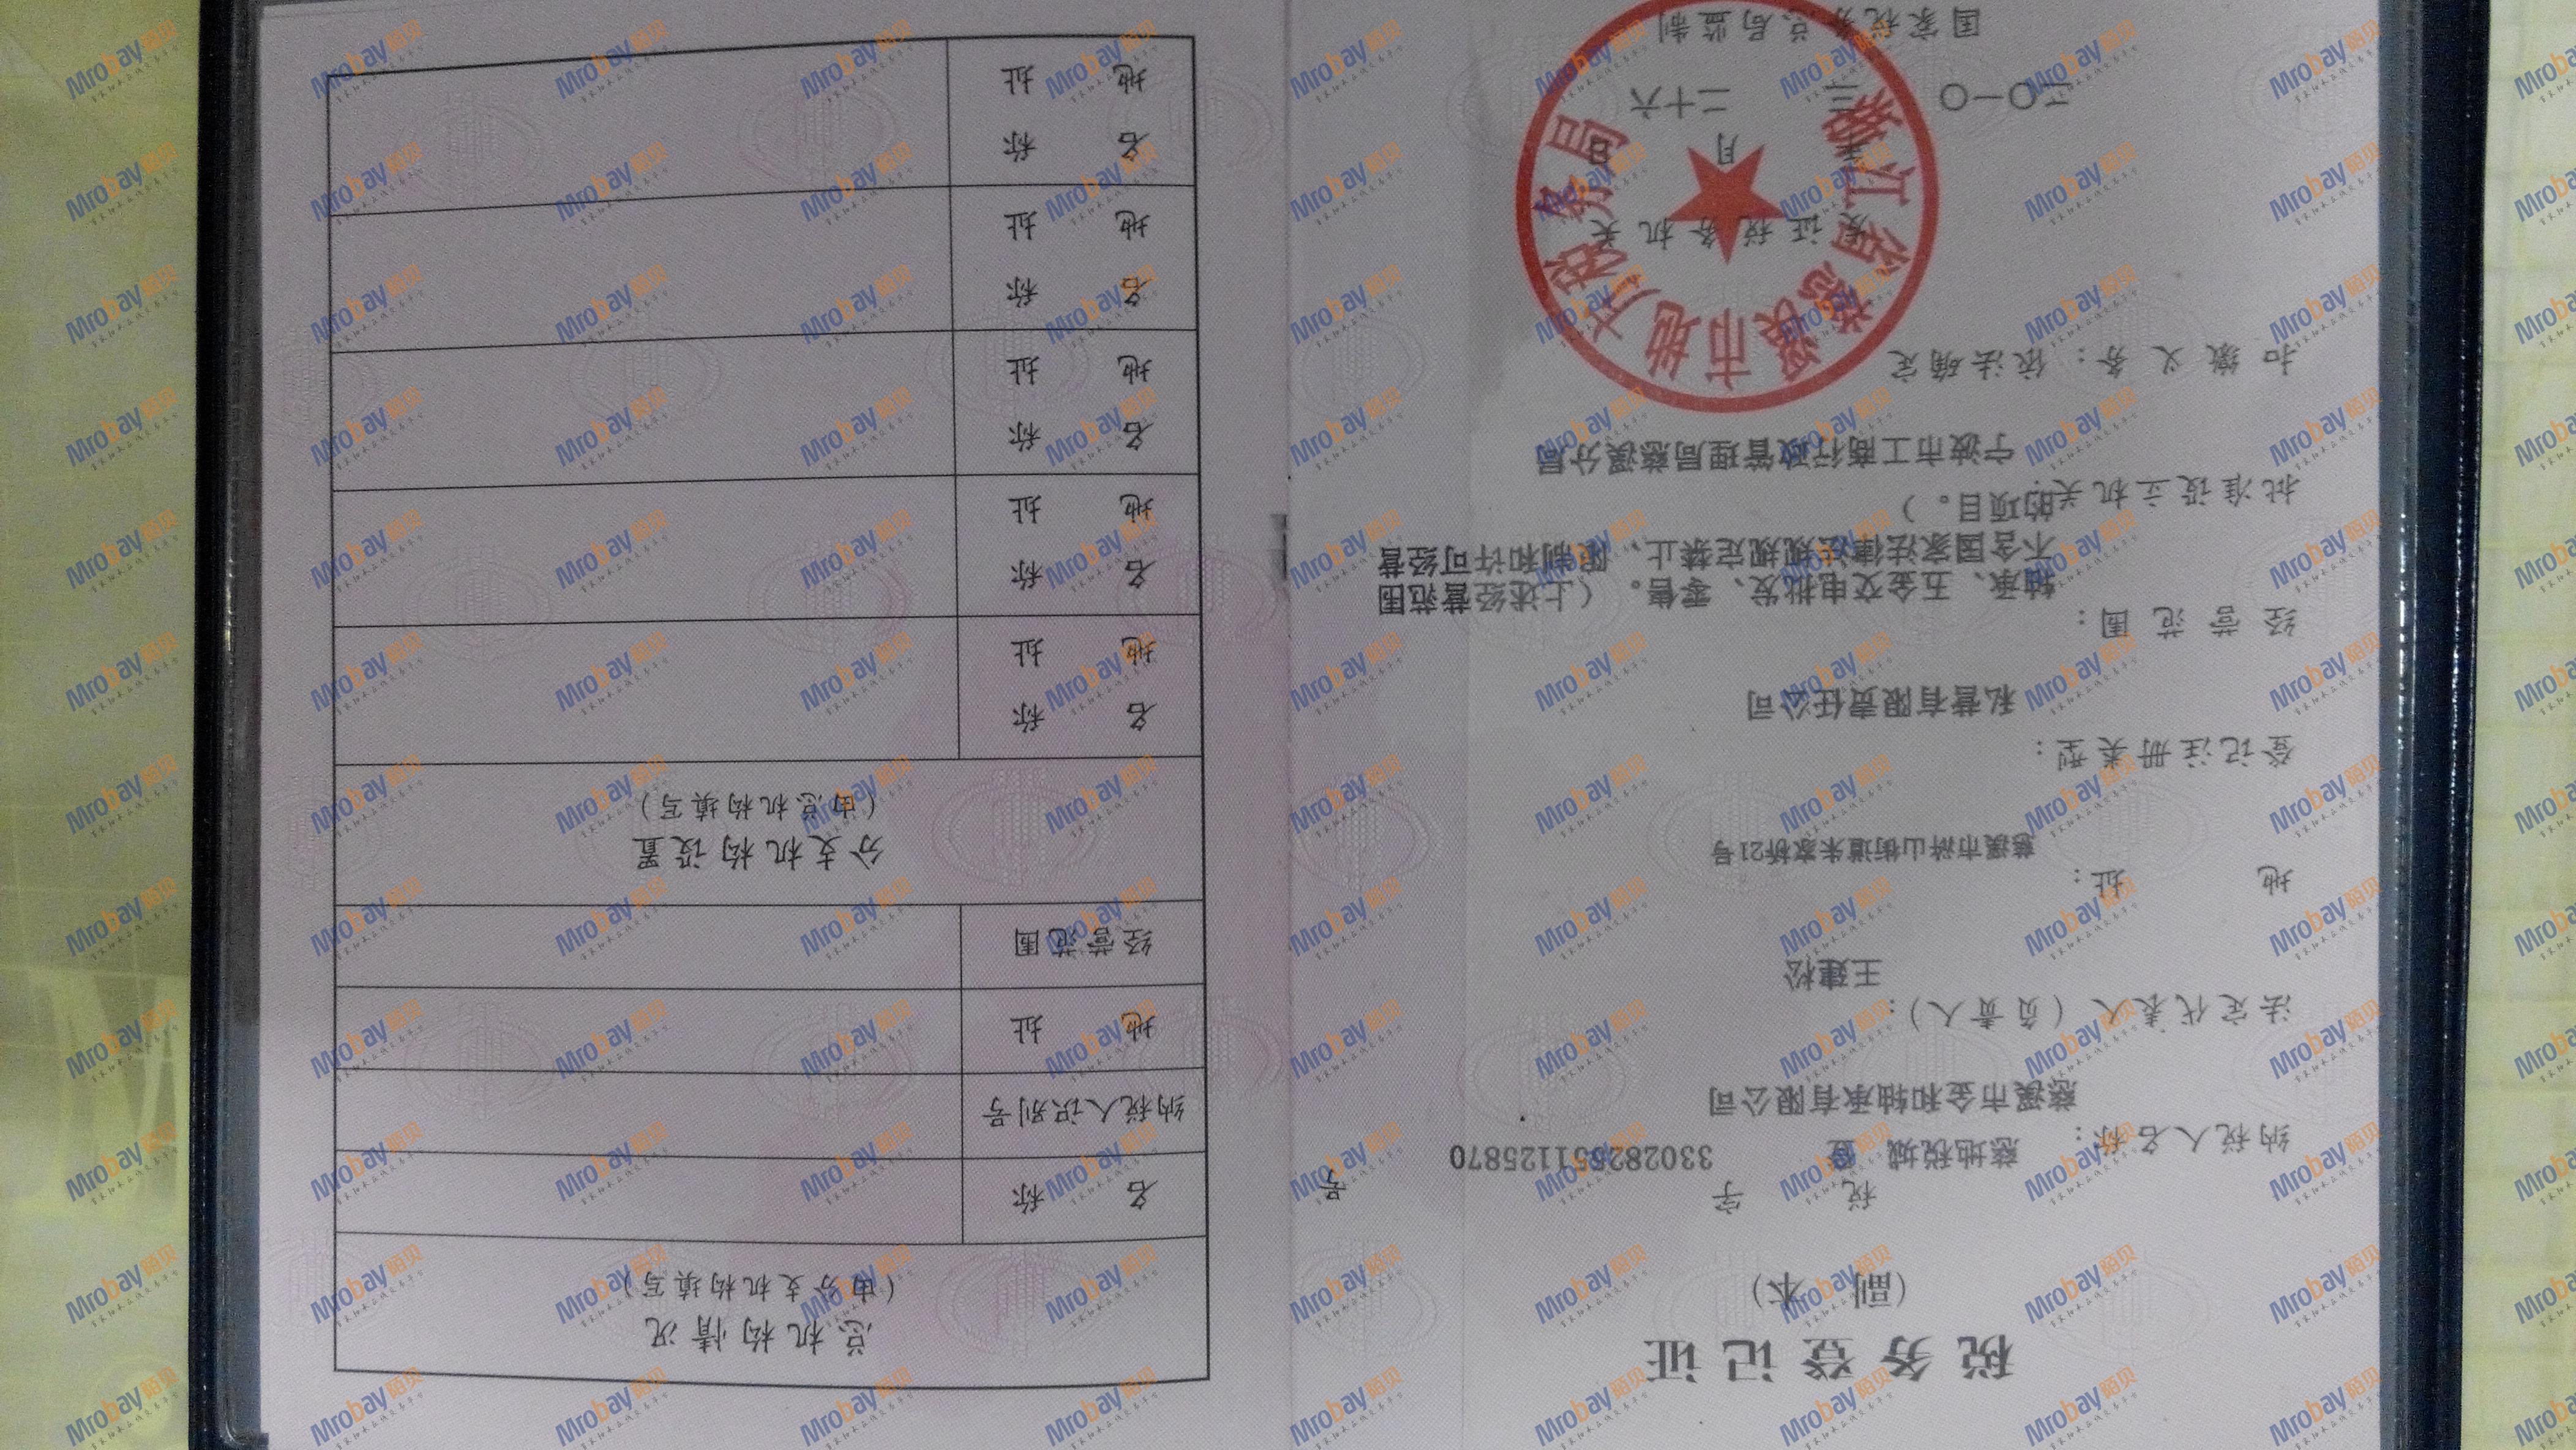 税务登记证
（副 本）
税 字
慈地税城 登 330282551125870 号
纳税人名称：
慈溪市金和轴承有限公司
法定代表人（负责人）：
王建松
地 址：
慈溪市浒山街道朱家桥21号
登记注册类型：
私营有限责任公司
经营范围：
轴承、五金交电批发、零售。（上述经营范围
不含国家法律法规规定禁止、限制和许可经营
的项目。）
批准设立机关：
宁波市工商行政管理局慈溪分局
扣缴义务：依法确定
发证税务机关
年 月 日
二〇一〇 三 二十六
国家税务总局监制
浙江省慈溪市地方税务局
总机构情况
（由分支机构填写）
名 称
纳税人识别号
地 址
经营范围
分支机构设置
（由总机构填写）
名 称
地 址
名 称
地 址
名 称
地 址
名 称
地 址
名 称
地 址
Mrobay陌贝